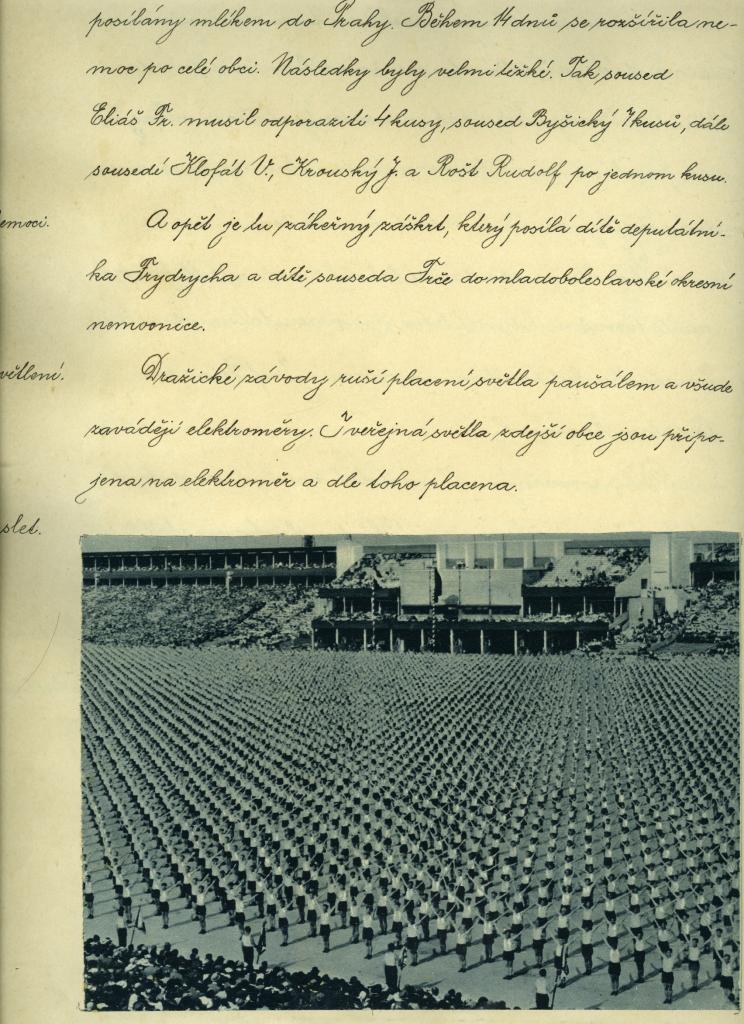 posílány mlékem do Prahy. Během 14 dnů se rozšířila ne-
moc po celé obci. Následky byly velmi těžké. Tak soused
Eliáš Fr. musil odporaziti 4 kusy, soused Byšický 7 kusů, dále
sousedé Klofát V., Krouský J. a Rošt Rudolf po jednom kusu.
emoci.
A opět je tu zákeřný záškrt, který posílá dítě deputátní-
ka Frydrycha a dítě souseda Trče do mladoboleslavské okresní
nemocnice.
větlení.
Dražické závody ruší placení světla paušálem a všude
zavádějí elektroměry. I veřejná světla zdejší obce jsou připo-
jena na elektroměr a dle toho placena.
slet.